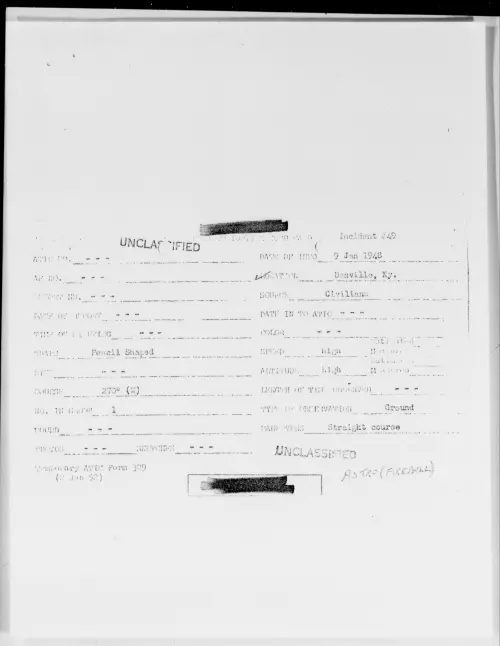 UNCLASSIFIED
Incident #49
ATIC NO. - - -
DATE OF INFO 9 Jan 1948
AF NO. - - -
LOCATION Danville, Ky.
REPORT NO. - - -
SOURCE Civilians
DATE OF REPORT - - -
DATE IN TO ATIC - - -
TIME OF SIGHTING - - -
COLOR - - -
SHAPE Pencil Shaped
SPEED high
SIZE - - -
ALTITUDE high
COURSE 270° (W)
LENGTH OF TIME OBSERVED - - -
NO. IN GROUP 1
TYPE OF OBSERVATION Ground
SOUND - - -
MANEUVERS Straight course
PHOTOS - - - SKETCHES - - -
UNCLASSIFIED
Temporary ATIC Form 329
(2 Jan 52)
ASTRO (FIREBALL)